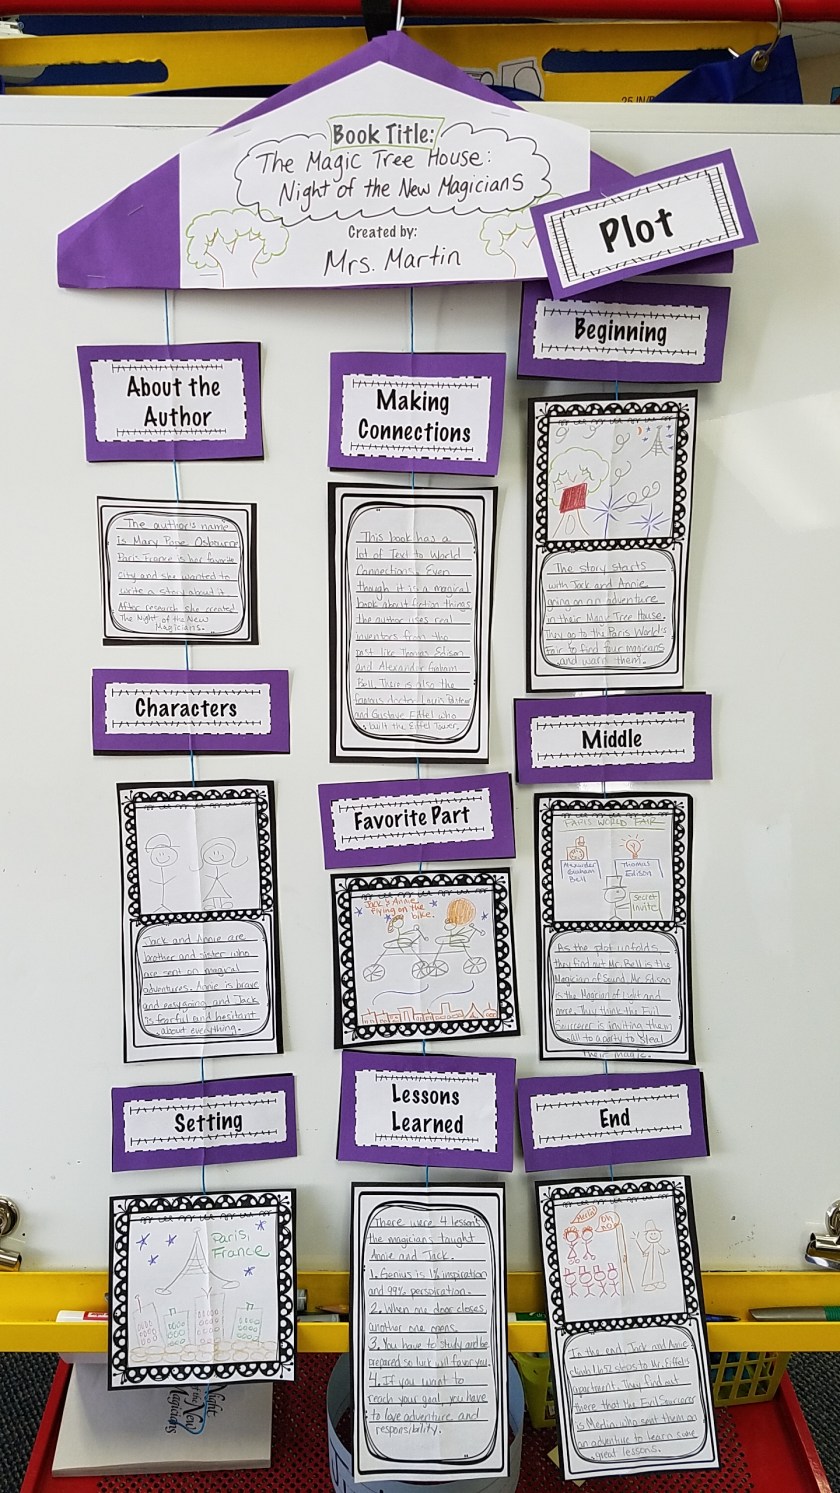 Book Title:
The Magic Tree House:
Night of the New Magicians
Created by:
Mrs. Martin
Plot
About the
Author
The author's name
Is Mary Pope Osbourne
Paris France is her favorite
city and she wanted to
write a story about it.
After research she created
The Night of the New
Magicians.
Characters
Jack and Annie are
brother and sister who
are sent on magical
adventures. Annie is brave
and easygoing and Jack
is fearful and hesitant
about everything.
Setting
Paris,
France
Making
Connections
This book has a
lot of Text to World
Connections. Even
though it is a magical
book about fiction things
the author uses real
inventors from the
past like Thomas Edison
and Alexander Graham
Bell. There is also the
famous doctor Louis Pasteur
and Gustave Eiffel who
built the Eiffel Tower.
Favorite Part
Jack & Annie
flying on the
bike.
Lessons
Learned
There were 4 lessons
the magicians taught
Annie and Jack.
1. Genius is 1% inspiration
and 99% perspiration.
2. When one door closes,
another one opens.
3. You have to study and be
prepared so luck will favor you.
4. If you want to
reach your goal, you have
to love adventure and
responsibility.
Beginning
The story starts
with Jack and Annie
going on an adventure
in their Magic Tree House.
They go to the Paris World's
Fair to find four magicians
and warn them.
Middle
PARIS WORLD FAIR
Alexander
Graham
Bell
Thomas
Edison
Secret
Invite
As the plot unfolds,
they find out Mr. Bell is the
Magician of Sound. Mr. Edison
is the Magician of Light and
more. They think the Evil
Sourcerer is inviting them
all to a party to steal
their magic.
End
In the end, Jack and Annie
climb 1,652 steps to Mr. Eiffel's
apartment. They find out
there that the Evil Sourcerer
is Merlin who sent them on
an adventure to learn some
great lessons.
25 IN/